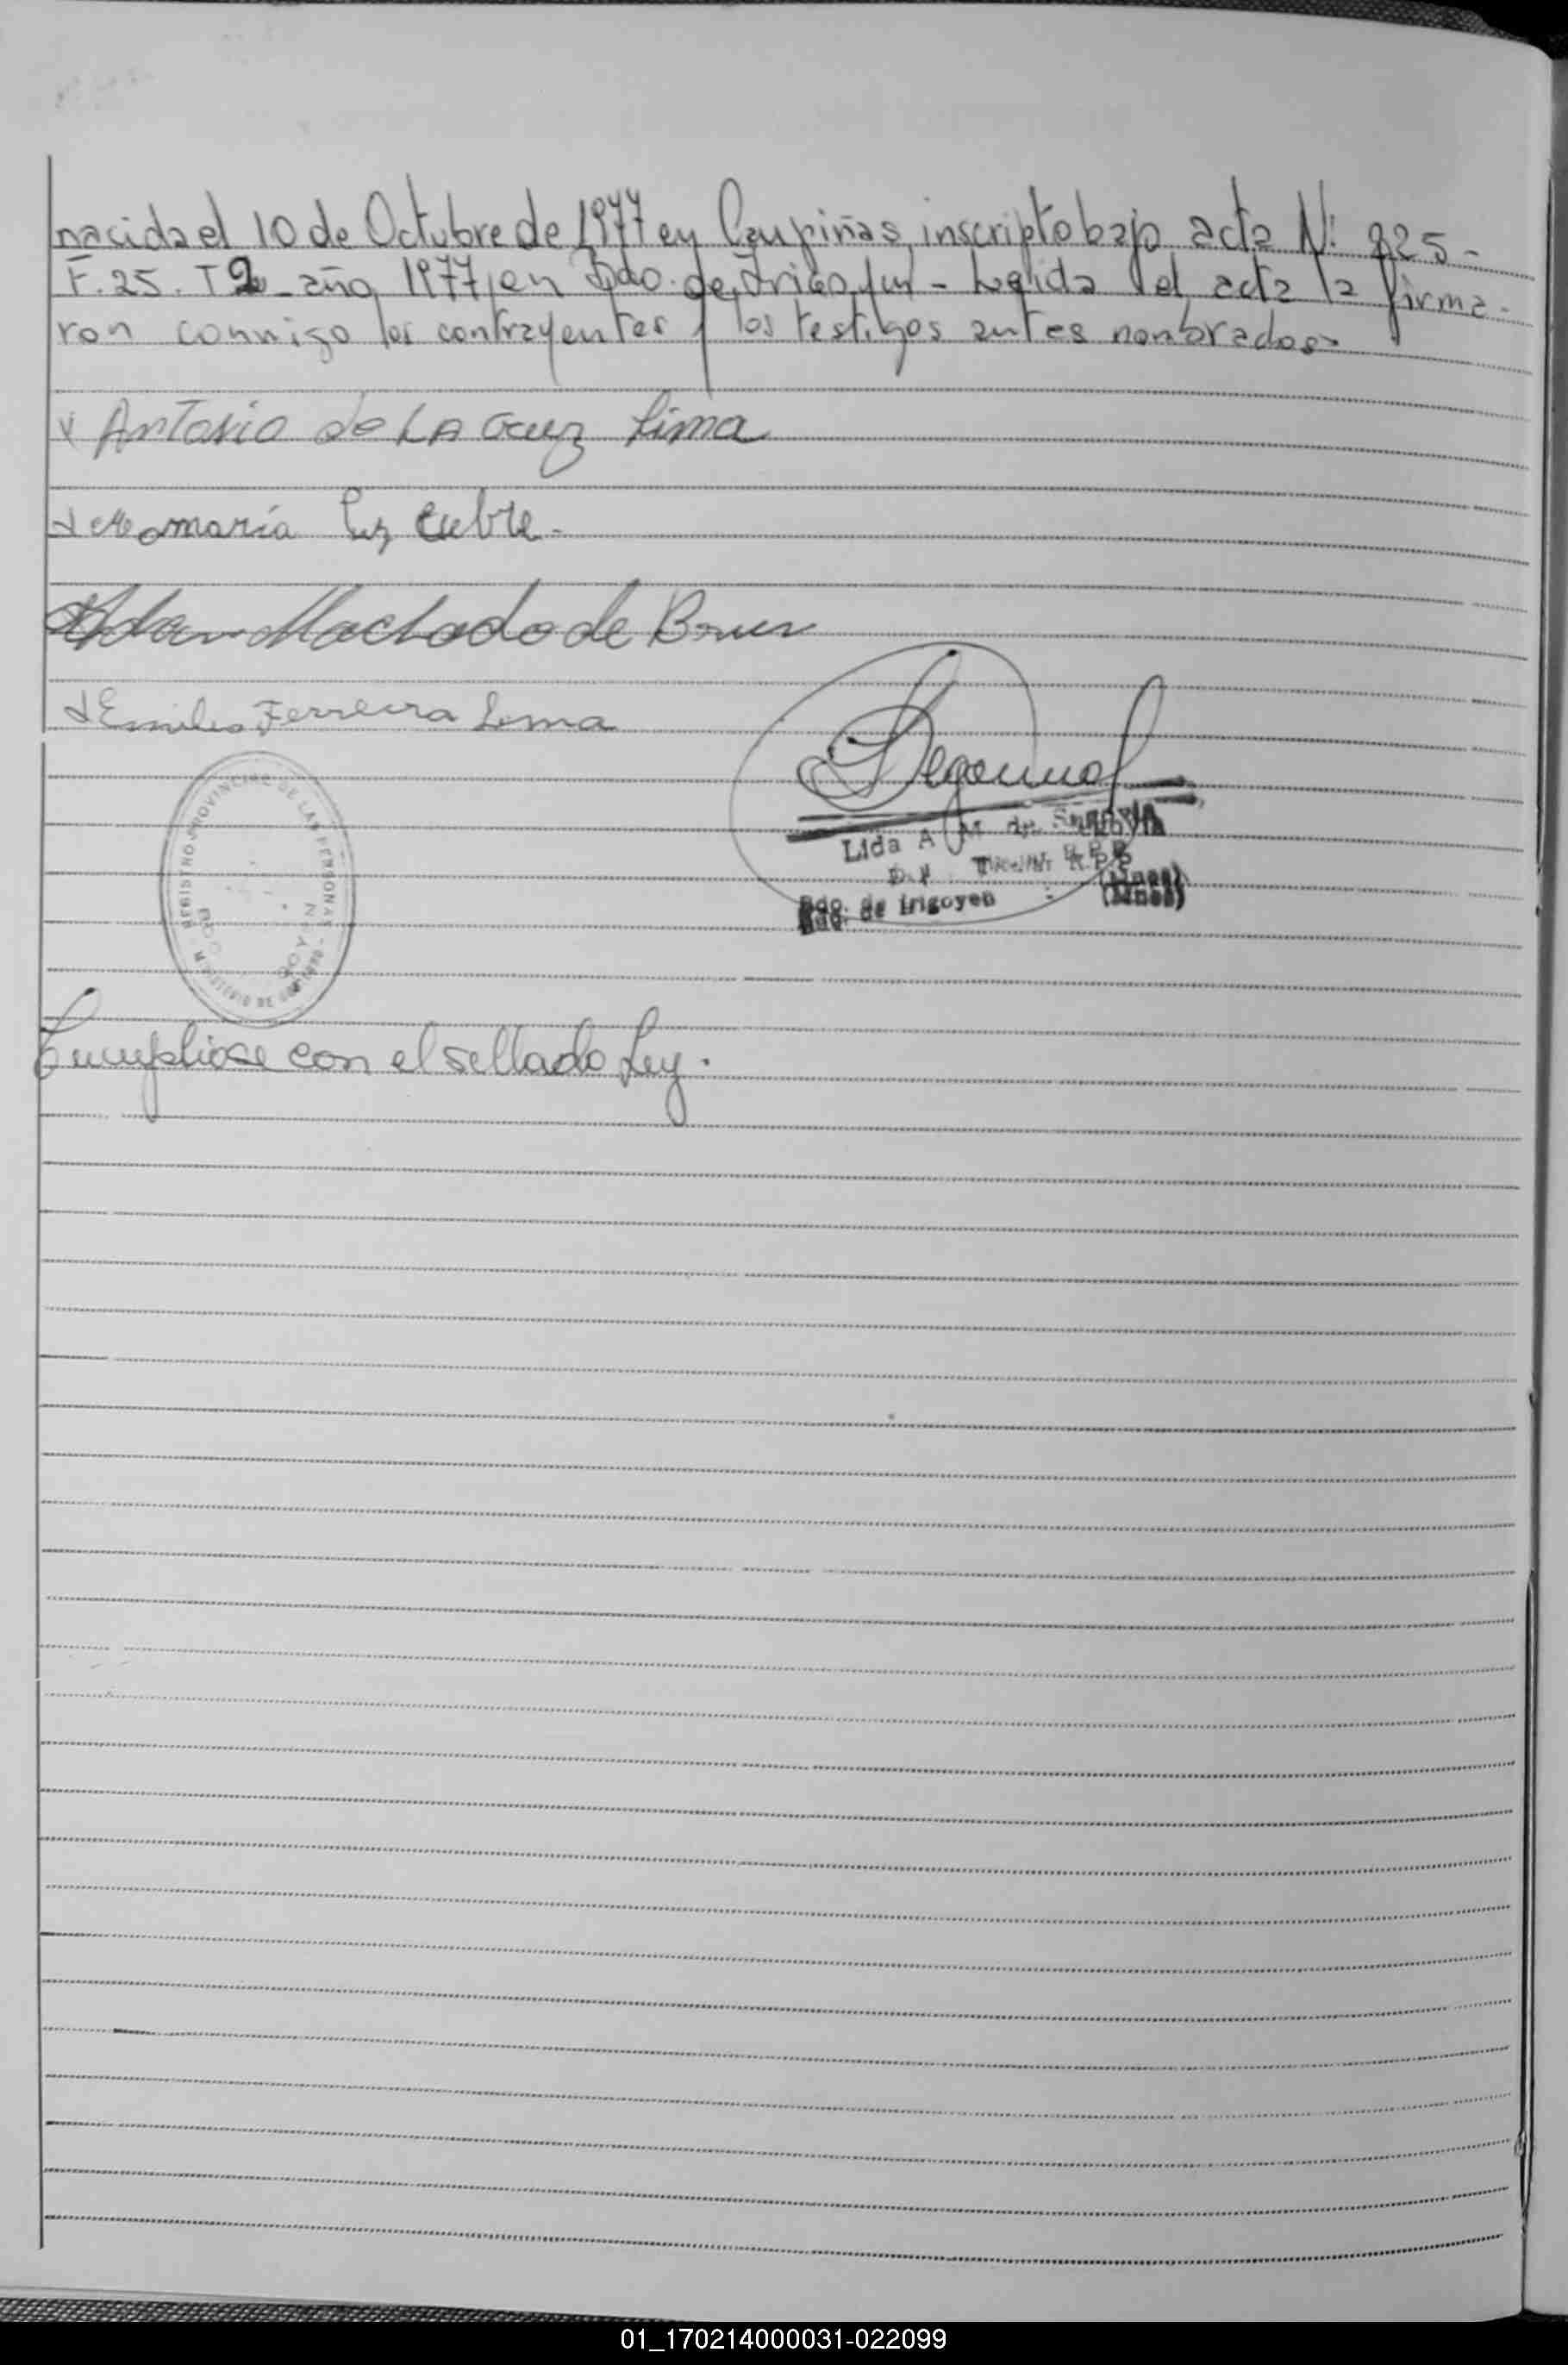 nacida el 10 de Octubre de 1977 en Campiñas, inscripto bajo acta Nº 825-
F. 25. T 2 - año 1977, en Bdo. de Irigoyen - Leida el acta la firma-
ron conmigo los contrayentes y los testigos antes nombrados-
Antonio de LA Cruz Lima
maría Luz
Machado de
Emilio Ferreira Lima
REGISTRO PROVINCIAL DE LAS PERSONAS
MINISTERIO DE GOBIERNO
Lida A M de
Bdo. de Irigoyen (Mnes)
Cumpliose con el sellado Ley.
01_170214000031-022099